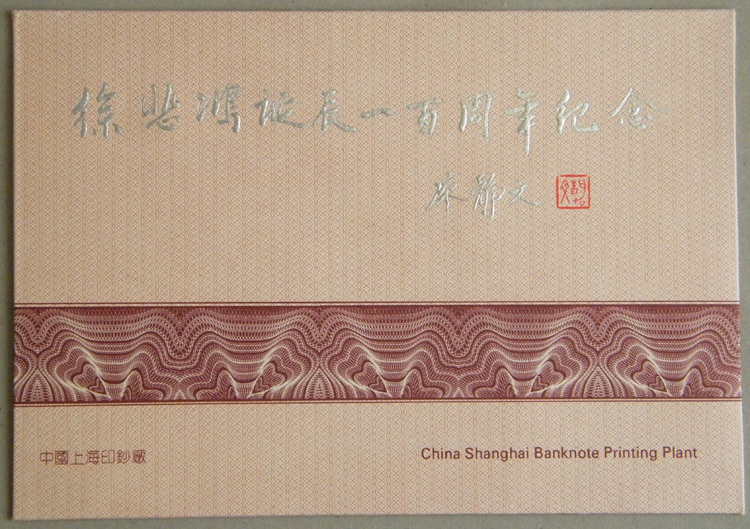 徐悲鸿诞辰一百周年纪念
廖静文
中國上海印鈔廠
China Shanghai Banknote Printing Plant